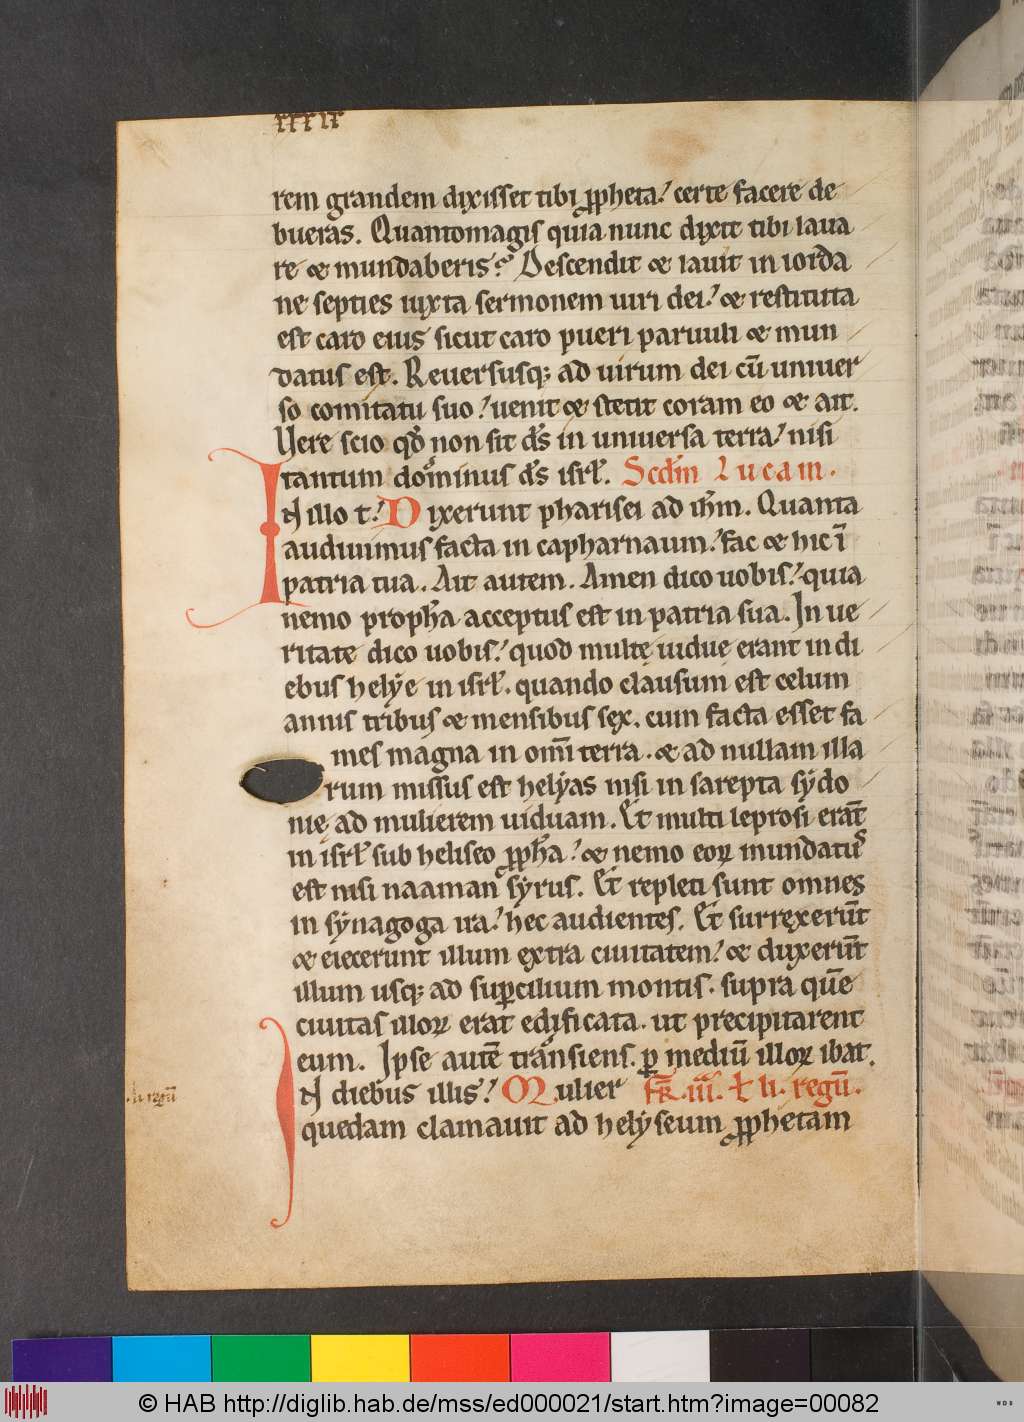 xxxix
rem grandem dixisset tibi ꝓpheta. certe facere de
bueras. Quantomagis quia nunc dixit tibi laua
re & mundaberis? Descendit & lauit in iorda
ne septies iuxta sermonem uiri dei. & restituta
est caro eius sicut caro pueri paruuli & mun
datus est. Reuersusq; ad uirum dei cū uniuer
so comitatu suo. uenit & stetit coram eo & ait.
Uere scio qđ non sit dˉs in uniuersa terra. nisi
tantum dominus dˉs isrl̄. Scdm̄ Lucam.
IN illo t. Dixerunt pharisei ad ihm̄. Quanta
audiuimus facta in capharnaum. fac & hic ī
patria tua. Ait autem. Amen dico uobis. quia
nemo proph̄a acceptus est in patria sua. In ue
ritate dico uobis. quod multę uidue erant in di
ebus helẏe in isrl̄. quando clausum est celum
annis tribus & mensibus sex. cum facta esset fa
mes magna in omī terra. & ad nullam illa
rum missus est helẏas nisi in sarepta sẏdo
nię ad mulierem uiduam. Et multi leprosi erāt
in isrl̄ sub heliseo ꝓph̄a. & nemo eoꝝ mundatꝰ
est nisi naaman sẏrus. Et repleti sunt omnes
in sẏnagoga ira. hec audientes. Et surrexerūt
& eiecerunt illum extra ciuitatem. & duxerūt
illum usq; ad suꝑcilium montis. supra quē
ciuitas illoꝝ erat edificata. ut precipitarent
eum. Ipse autē transiens. ꝑ mediū illoꝝ ibat.
IN diebus illis. Mulier fr̄. iii. l̄ li. regū.
.li. regū
quedam clamauit ad helyseum ꝓphetam
© HAB http://diglib.hab.de/mss/ed000021/start.htm?image=00082